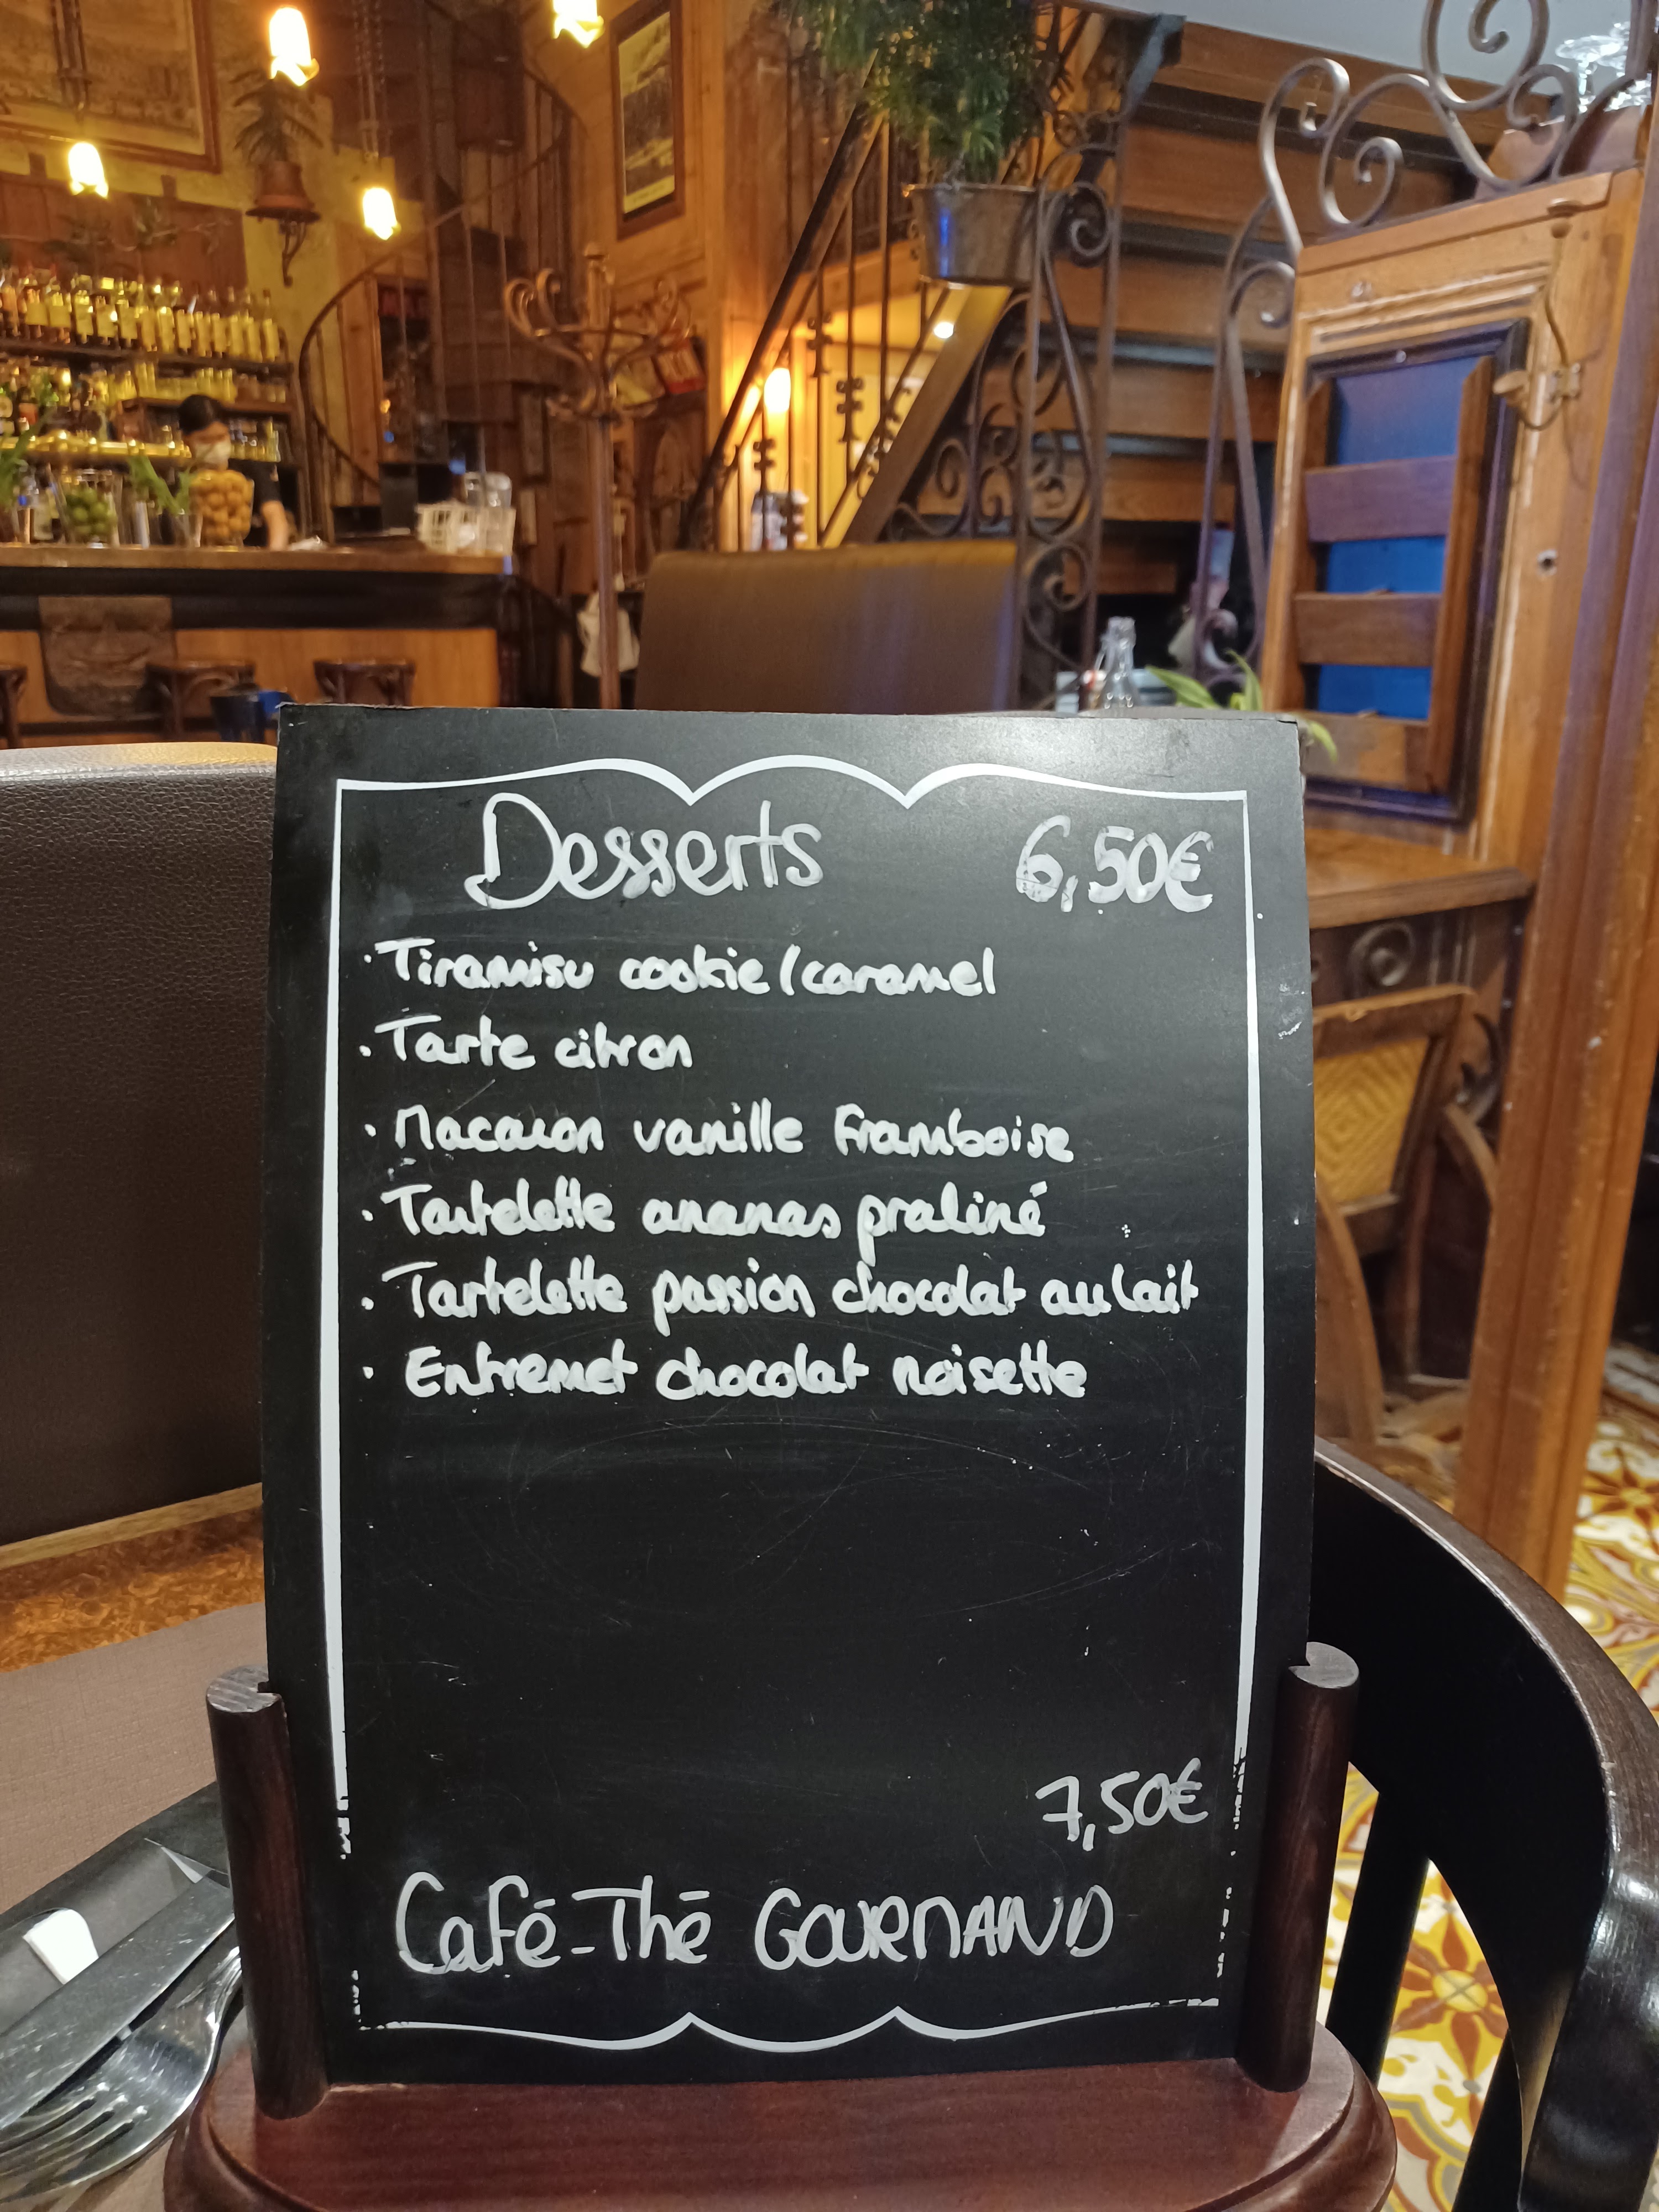 Desserts 6,50€
· Tiramisu cookie/caramel
· Tarte citron
· Macaron vanille framboise
· Tartelette ananas praliné
· Tartelette passion chocolat au lait
· Entremet chocolat noisette
7,50€
Café-Thé GOURMAND